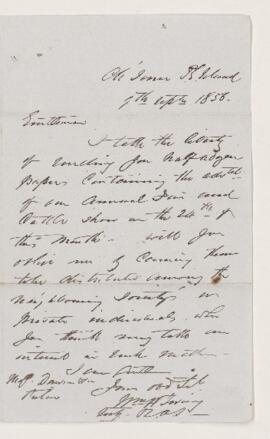 Ch' Town P. E. Island
9th Septr 1856.
Gentlemen
I take the liberty
of sending you half a dozen
papers containing the advt
of our Annual Fair and
Cattle Show on the 24th of
this Month. Will you
oblige me by causing them
to be distributed among the
neighbouring Societys or
private individuals who
you think may take an
interest in such matters
I am Gentn
Your obdt
Irving